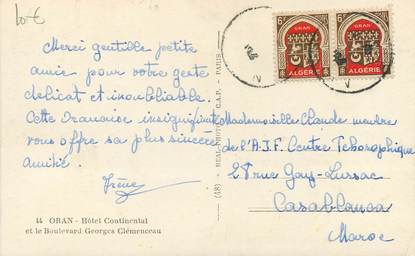 10 €
Merci gentille petite
amie pour votre geste
délicat et inoubliable.
Cette Oranaise insignifiante
vous offre sa plus sincère
amitié.
Irène
44 ORAN - Hôtel Continental
et le Boulevard Georges Clémenceau
(48) REAL-PHOTO C.A.P. - PARIS
6F ORAN
ALGÉRIE
6F ORAN
ALGÉRIE
Mademoiselle Claude
de l'A.I.F. Centre
28 rue Gay-Lussac
Casablanca
Maroc